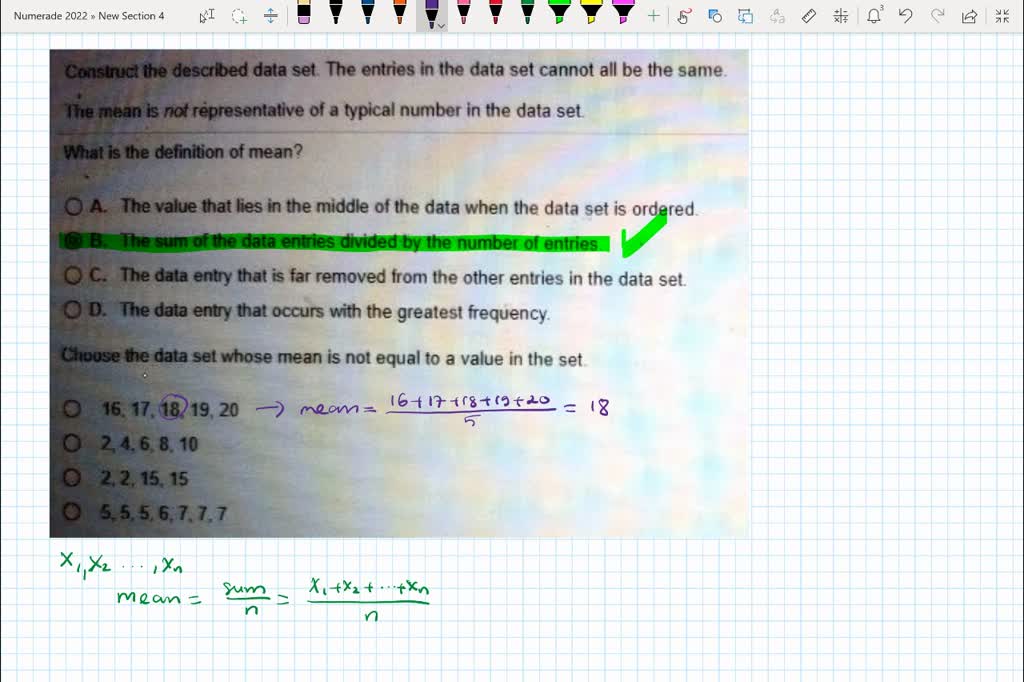 Numerade 2022 » New Section 4
3
Construct the described data set. The entries in the data set cannot all be the same.
The mean is not representative of a typical number in the data set.
What is the definition of mean?
A. The value that lies in the middle of the data when the data set is ordered.
B. The sum of the data entries divided by the number of entries.
C. The data entry that is far removed from the other entries in the data set.
D. The data entry that occurs with the greatest frequency.
Choose the data set whose mean is not equal to a value in the set.
16, 17, 18, 19, 20 → mean = 16+17+18+19+20 / 5 = 18
2, 4, 6, 8, 10
2, 2, 15, 15
5, 5, 5, 6, 7, 7, 7
x₁, x₂ ..., xₙ
mean = sum / n = x₁+x₂+...+xₙ / n